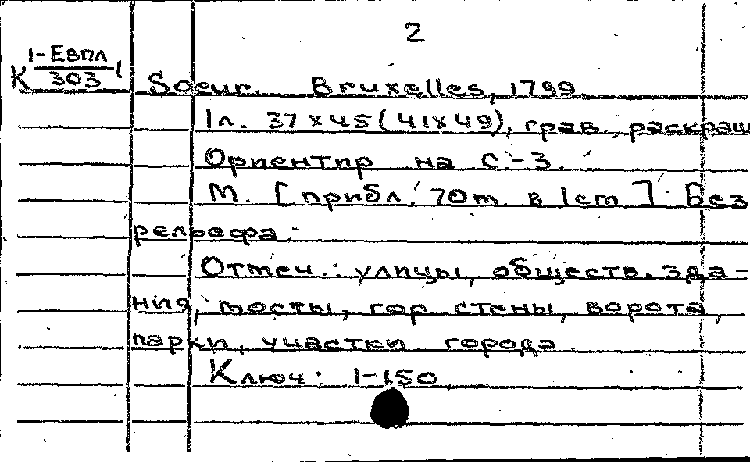 2
К 1-Евпл/303 1
Soeur. Bruxelles, 1799
1л. 37х45(41х49), грав., раскраш
Ориентир на С-З.
М. [прибл. 70m в 1cm]. Без
рельефа.
Отмеч.: улицы, обществ. зда-
ния, мосты, гор стены, ворота,
парки, участки города
Ключ: 1-150